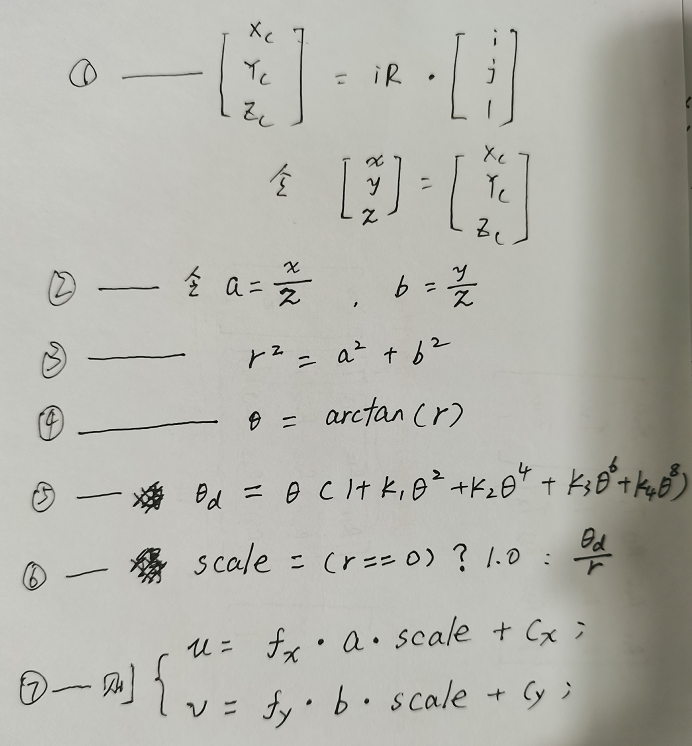 ① —— [Xc Yc Zc] = iR · [i j 1]
令 [x y z] = [Xc Yc Zc]
② —— 令 a = x/z , b = y/z
③ —— r² = a² + b²
④ —— θ = arctan(r)
⑤ —— θd = θ(1+k₁θ²+k₂θ⁴+k₃θ⁶+k₄θ⁸)
⑥ —— scale = (r==0) ? 1.0 : θd/r
⑦ — 则 { u = fx · a · scale + Cx ;
v = fy · b · scale + Cy ;